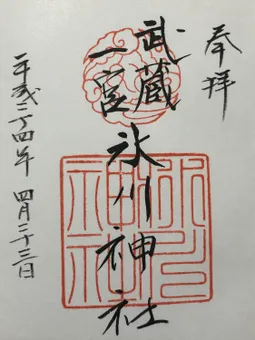 奉拝
武蔵
一宮
氷川神社
平成二十四年 四月二十三日
氷川
神社